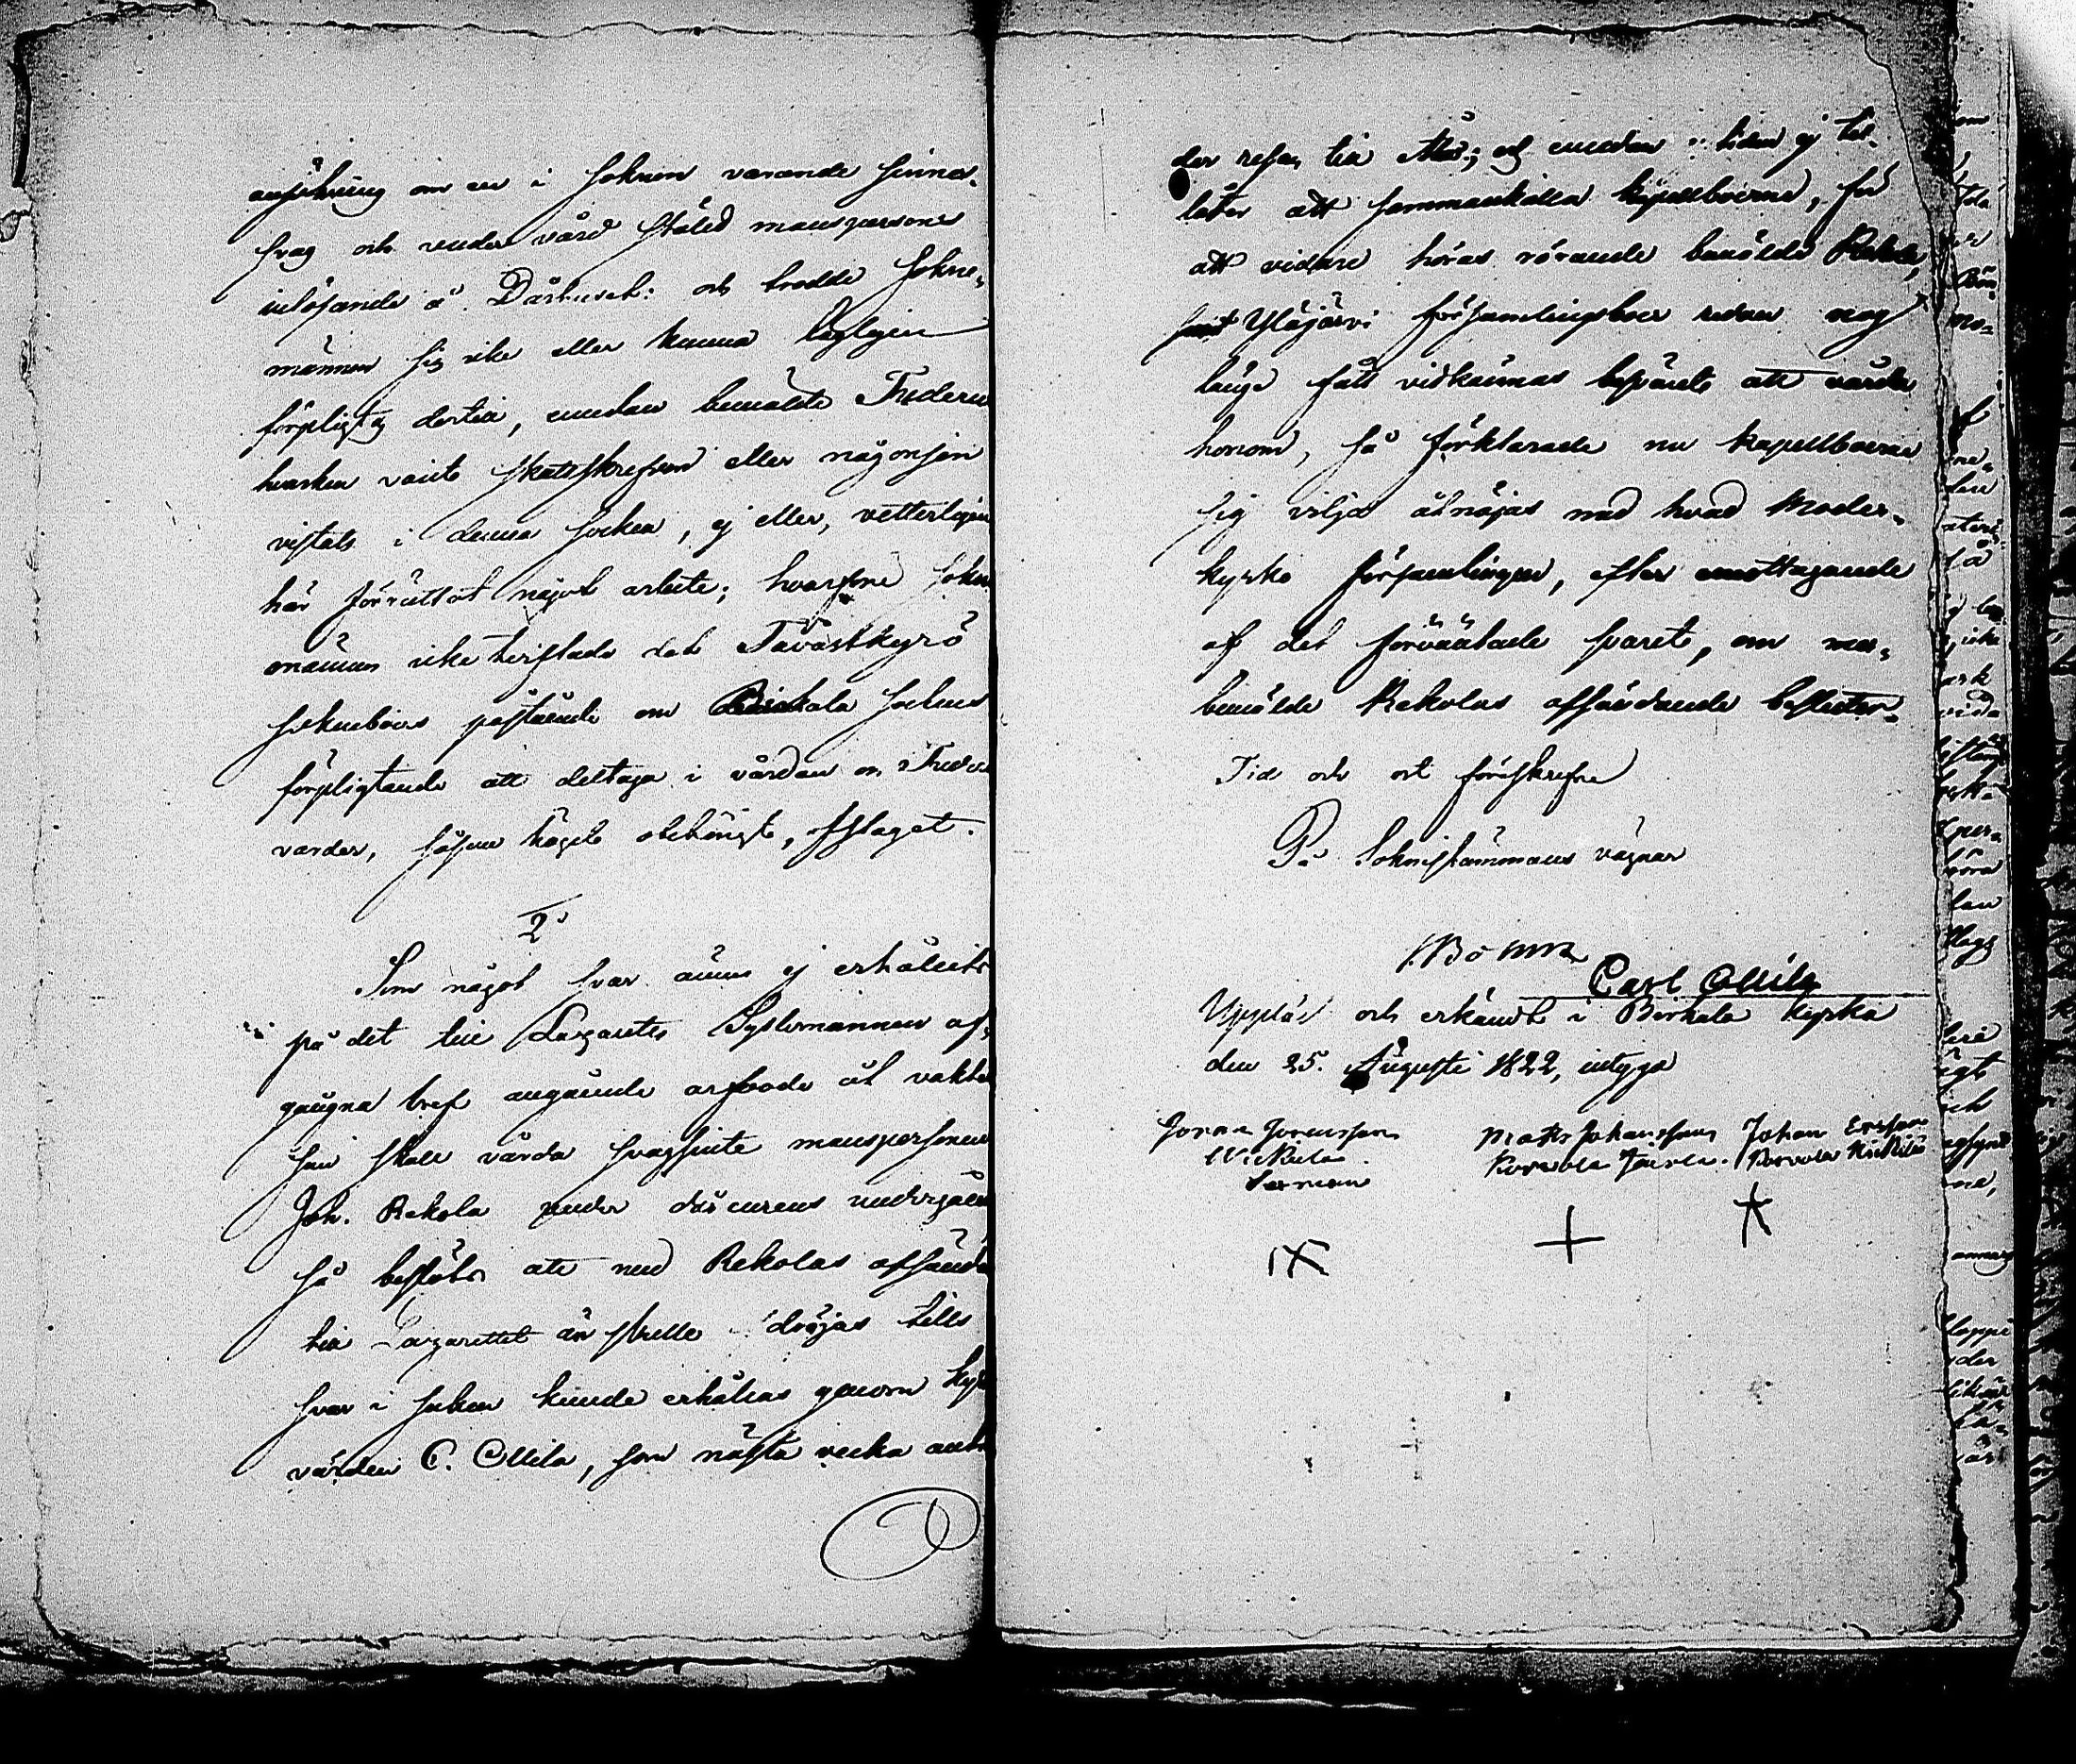 ansökning om en i Soknen varande sinnes-
svag och under vård stäld mansperson
inlösande å Dårhuset: och trodde Sokne-
männen sig icke eller kunna lagligen
förpligtas dertill, emedan bemälte
hvarken varit skattskrefven eller någonsin
vistats i denna socken, ej eller, vetterligen
här förrättat något arbete; hvarföre Sokne-
männen icke det Tavastkyrö
Sokneboers påstående om Birkala Sockens
förpligtande att deltaga i vården om
varder, såsom högst obehörigt, afslaget.
2º
Som något svar ännu ej erhållits
på det till Lazaretts Sysslomannen af-
gångna bref angående arfvode åt vakten
som skall vårda svagsinte manspersonen
Joh. Rekola under dårcurens
så beslöts att med Rekolas afsända
till Lazarettet än skulle dröjas tills
svar i saken kunde erhållas genom Kyrk-
värden C. Ollila, som nästa vecka
der resan till Åbo; och emedan tiden ej til-
låter att sammankalla kapellboerne, för
att vidare höras rörande bemälde Rekola,
samt Ylöjärvi församlingsboer redan nog
länge fått vidkännas besväret att vårda
honom, så förklarade nu kapellboerne
sig vilja åtnöjas med hvad Moder-
kyrko församlingen, efter emottagande
af det förväntade svaret, om mer-
bemälde Rekolas afsändande beslutar.
Tid och ort förskrefne
På Soknestämmans vägnar
Carl Ollila
Uppläst och erkändt i Birkala kyrka
den 25. Augusti 1822, intyga
Johan Ersson
Matts Johansson